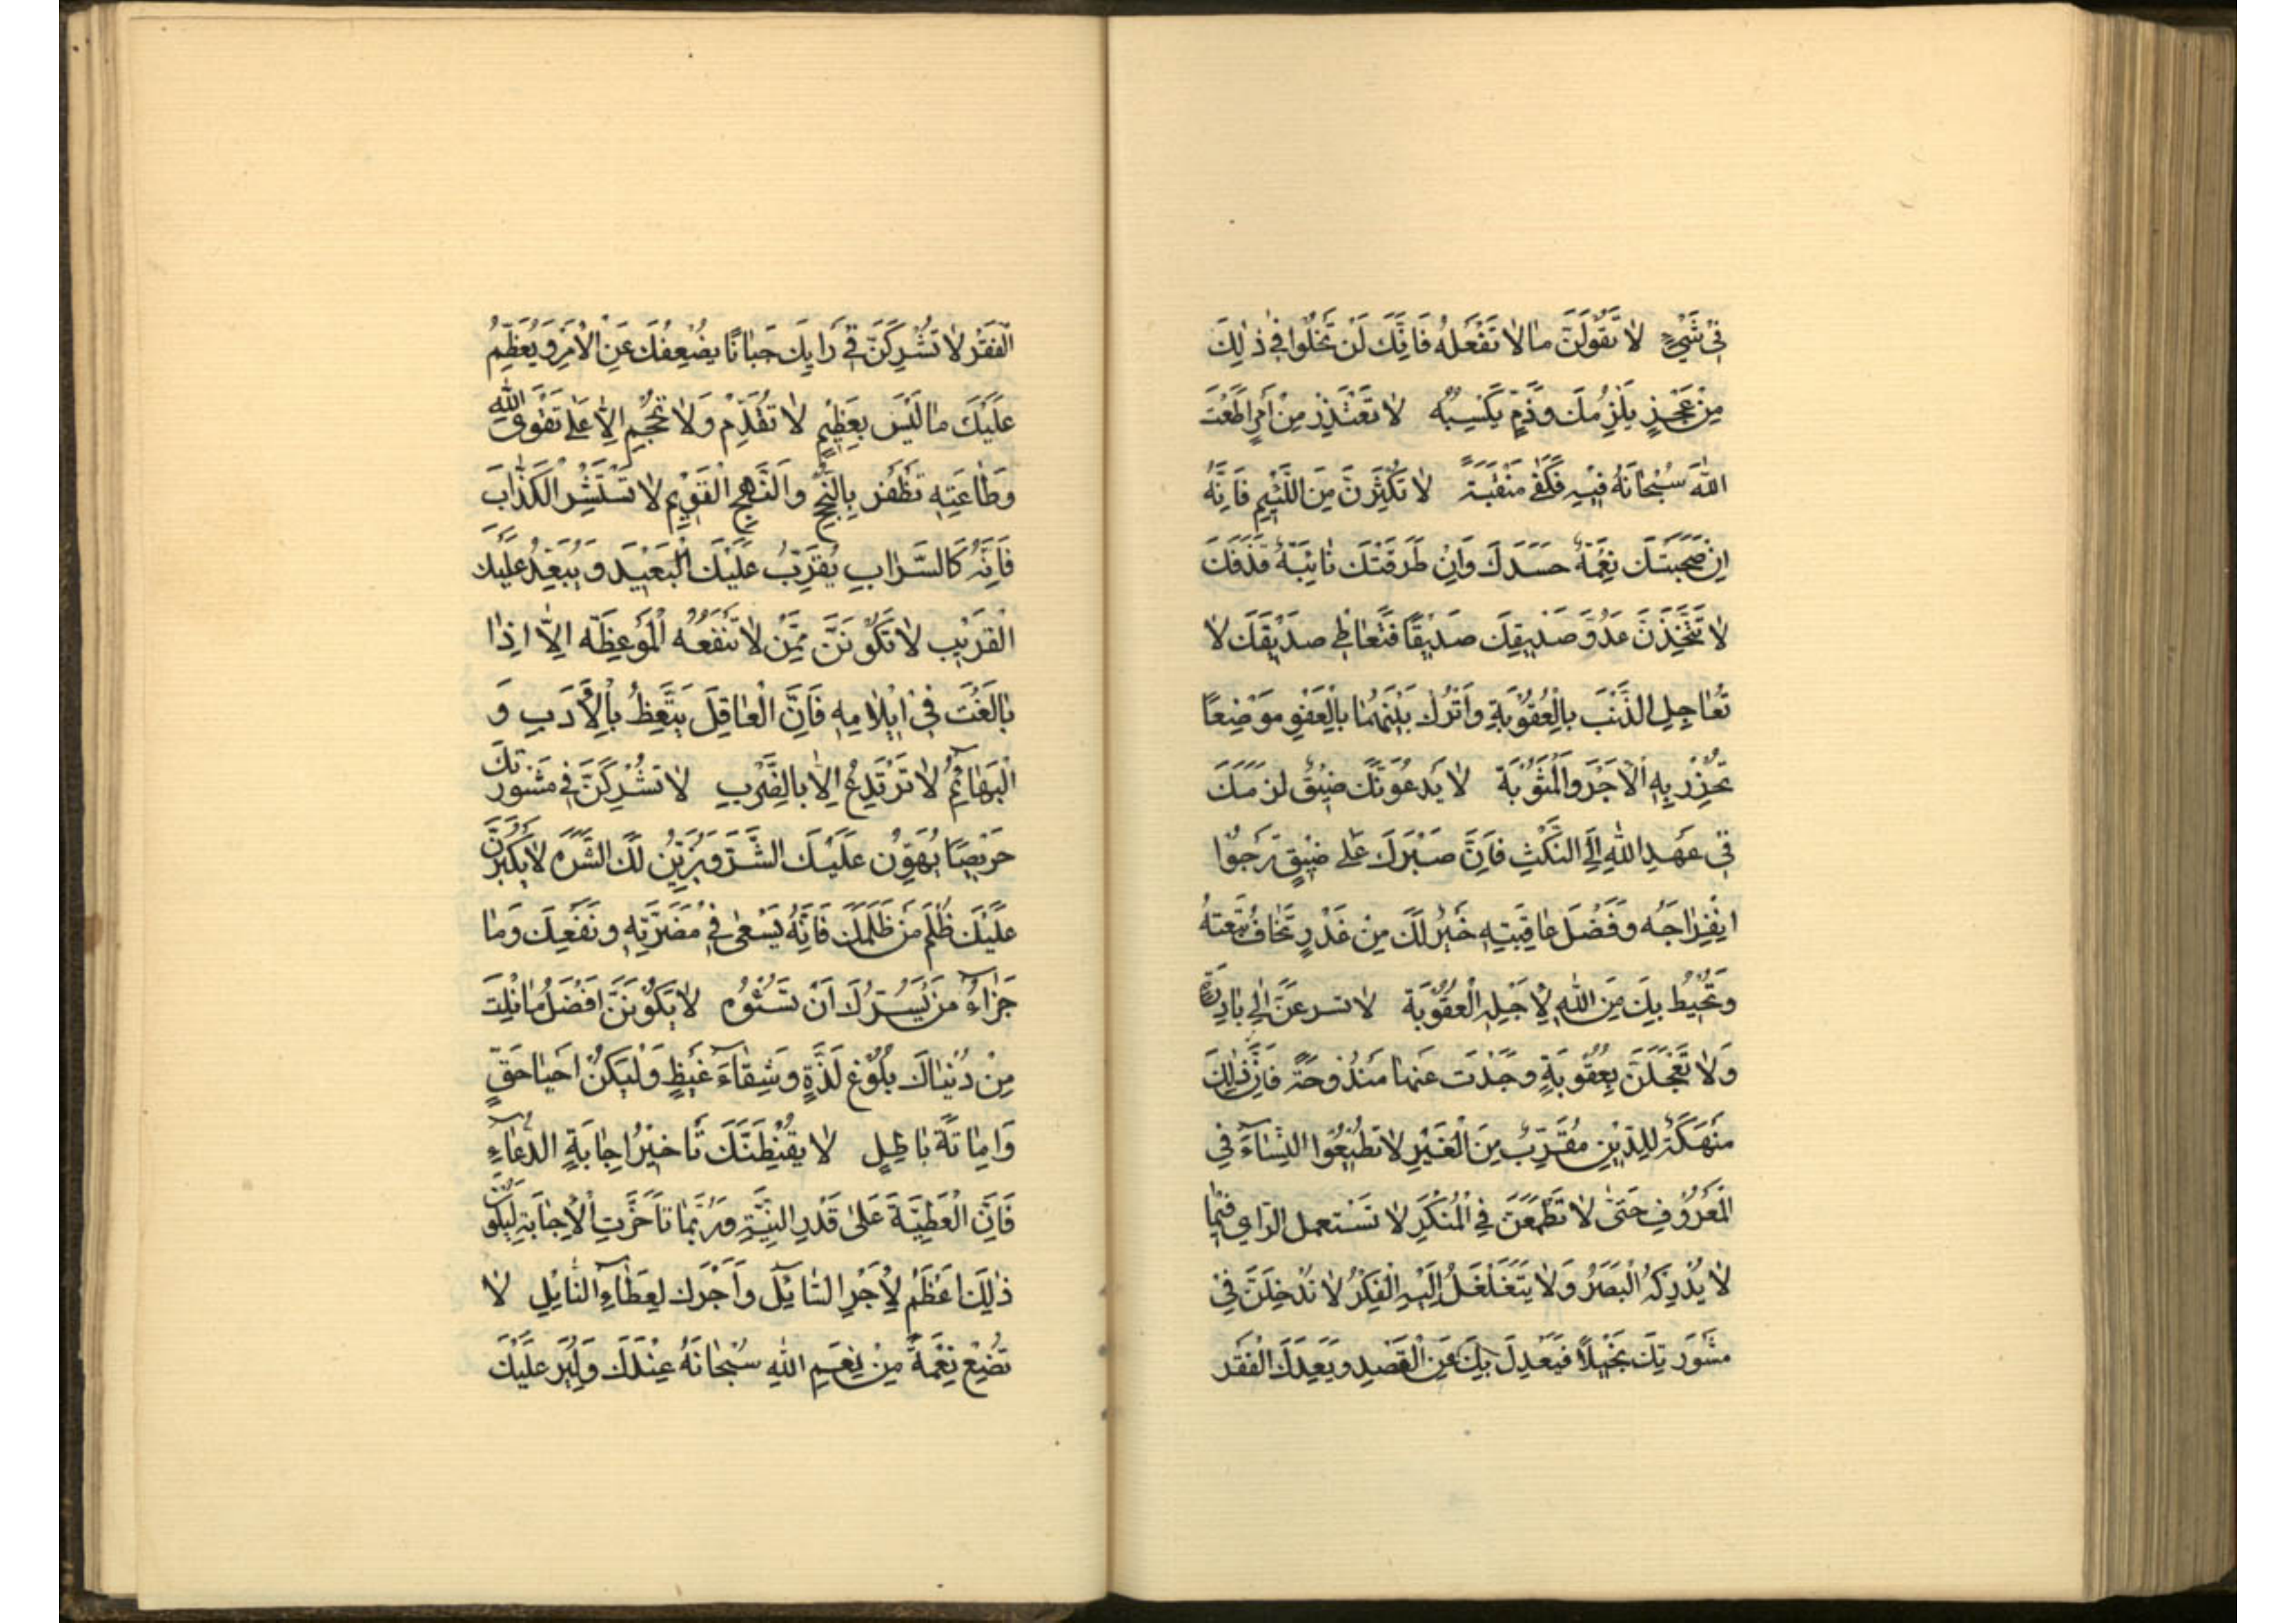 فِي شَيْءٍ لَا تَقُولَنَّ مَا لَا تَفْعَلُهُ فَاِنَّكَ لَنْ تَخْلُوا فِي ذٰلِكَ
مِنْ عَجْزٍ يَلْزِمُكَ وَذَمٍّ تَكْسِبُهُ لَا تَعْتَذِرْ مِنْ اَمْرٍ اَطَعْتَ
اللّٰهَ سُبْحَانَهُ فِيْهِ فَكَفٰى مَنْقَبَةً لَا تُكْثِرَنَّ مِنَ اللَّئِيْمِ فَاِنَّهُ
اِنْ صَحِبَتْكَ نِعْمَةٌ حَسَدَكَ وَاِنْ طَرَقَتْكَ نَائِبَةٌ قَذَفَكَ
لَا تَتَّخِذَنَّ عَدُوَّ صَدِيقِكَ صَدِيْقًا فَتُعَاطِي صَدِيْقَكَ لَا
تُعَاجِلِ الذَّنْبَ بِالْعُقُوْبَةِ وَاتْرُكْ بَيْنَهُمَا بِالْعَفْوِ مَوْضِعًا
تُحْرِزْ بِهِ الْاَجْرَ وَالْمَثُوْبَةَ لَا يَدْعُوَنَّكَ ضِيْقٌ لَزِمَكَ
فِي عَهْدِ اللّٰهِ اِلَى النَّكْثِ فَاِنَّ صَبْرَكَ عَلٰى ضِيْقٍ تَرْجُوا
اِنْفِرَاجَهُ وَفَضْلَ عَاقِبَتِهِ خَيْرٌ لَكَ مِنْ غَدْرٍ تَخَافُ تَبِعَتَهُ
وَتُحِيْطُ بِكَ مِنَ اللّٰهِ لِاَجْلِهِ الْعُقُوْبَةُ لَا تُسْرِعَنَّ اِلٰى بَادِرَةٍ
وَلَا تَعْجَلَنَّ بِعُقُوْبَةٍ وَجَدْتَ عَنْهَا مَنْدُوحَةً فَاِنَّ ذٰلِكَ
مَنْهَكَةٌ لِلدِّيْنِ مُقَرِّبٌ مِنَ الْغَيْرِ لَا تُطِيْعُوا النِّسَاءَ فِي
الْمَعْرُوْفِ حَتّٰى لَا تَطْمَعَنَّ فِي الْمُنْكَرِ لَا تَسْتَعْمِلِ الرَّايَ فِيْمَا
لَا يُدْرِكُهُ الْبَصَرُ وَلَا يَتَغَلْغَلُ اِلَيْهِ الْفِكْرُ لَا تُدْخِلَنَّ فِي
مَشْوَرَتِكَ بَخِيْلًا فَيَعْدِلَ بِكَ عَنِ الْقَصْدِ وَيَعِدَكَ الْفَقْرَ
الْفَقْرَ لَا تُشْرِكَنَّ فِي رَايِكَ جَبَانًا يُضْعِفُكَ عَنِ الْاَمْرِ وَيُعَظِّمُ
عَلَيْكَ مَا لَيْسَ بِعَظِيْمٍ لَا تُقَدِّمْ وَلَا تُحْجِمْ اِلَّا عَلٰى تَقْوَى اللّٰهِ
وَطَاعَتِهِ تَظْفَرْ بِالنُّجْحِ وَالنَّهْجِ الْقَوِيْمِ لَا تَسْتَشِرِ الْكَذَّابَ
فَاِنَّهُ كَالسَّرَابِ يُقَرِّبُ عَلَيْكَ الْبَعِيْدَ وَيُبَعِّدُ عَلَيْكَ
الْقَرِيْبَ لَا تَكُوْنَنَّ مِمَّنْ لَا تَنْفَعُهُ الْمَوْعِظَةُ اِلَّا اِذَا
بَالَغْتَ فِي اِيْلَامِهِ فَاِنَّ الْعَاقِلَ يَتَّعِظُ بِالْاَدَبِ وَ
الْبَهَائِمُ لَا تَرْتَدِعُ اِلَّا بِالضَّرْبِ لَا تُشْرِكَنَّ فِي مَشْوَرَتِكَ
حَرِيْصًا يُهَوِّنُ عَلَيْكَ الشَّرَّ وَيُزَيِّنُ لَكَ الشَّرَهَ لَا يَكْبُرَنَّ
عَلَيْكَ ظُلْمُ مَنْ ظَلَمَكَ فَاِنَّهُ يَسْعٰى فِي مَضَرَّتِهِ وَنَفْعِكَ وَمَا
جَزَاءُ مَنْ يَسُرُّكَ اَنْ تَسُوْءَهُ لَا يَكُوْنَنَّ اَفْضَلُ مَا نِلْتَ
مِنْ دُنْيَاكَ بُلُوْغَ لَذَّةٍ وَشِفَاءَ غَيْظٍ وَلْيَكُنْ اِحْيَا حَقٍّ
وَاِمَاتَةَ بَاطِلٍ لَا يُقْنِطَنَّكَ تَاخِيْرُ اِجَابَةِ الدُّعَاءِ
فَاِنَّ الْعَطِيَّةَ عَلٰى قَدْرِ النِّيَّةِ وَرُبَّمَا تَاَخَّرَتِ الْاِجَابَةُ لِيَكُوْنَ
ذٰلِكَ اَعْظَمَ لِاَجْرِ السَّائِلِ وَاَجْزَلَ لِعَطَاءِ النَّائِلِ لَا
تُضَيِّعْ نِعْمَةً مِنْ نِعَمِ اللّٰهِ سُبْحَانَهُ عِنْدَكَ وَلْيُرَ عَلَيْكَ